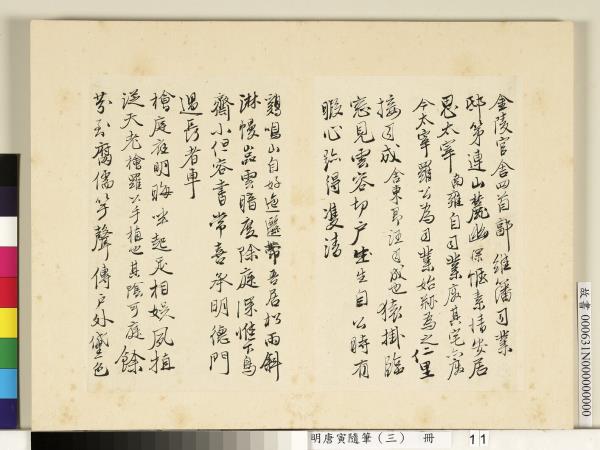 金陵官舍四首 維藩司業
邸第連山麓幽深愜素情安居
思太宰 南雍自司業 其宅
今太宰羅公為司業始新為之 仁里
接司成 舍東 汪司成也 猿掛臨
窓見雲容切戶生生自公時有
暇心跡得雙清
鷄鳴山自好迤邐帶吾居松雨斜
淋幔嵓雲暗度除庭深惟下鳥
齋小但容書常喜承明德門
過長者車
檜庭 明晦坐起足相娛夙植
從天老 檜羅公手植也其陰可庭 餘
芬到腐儒竽聲傳戶外黛色
故書 000631N000000000
明唐寅隨筆(三) 冊 11